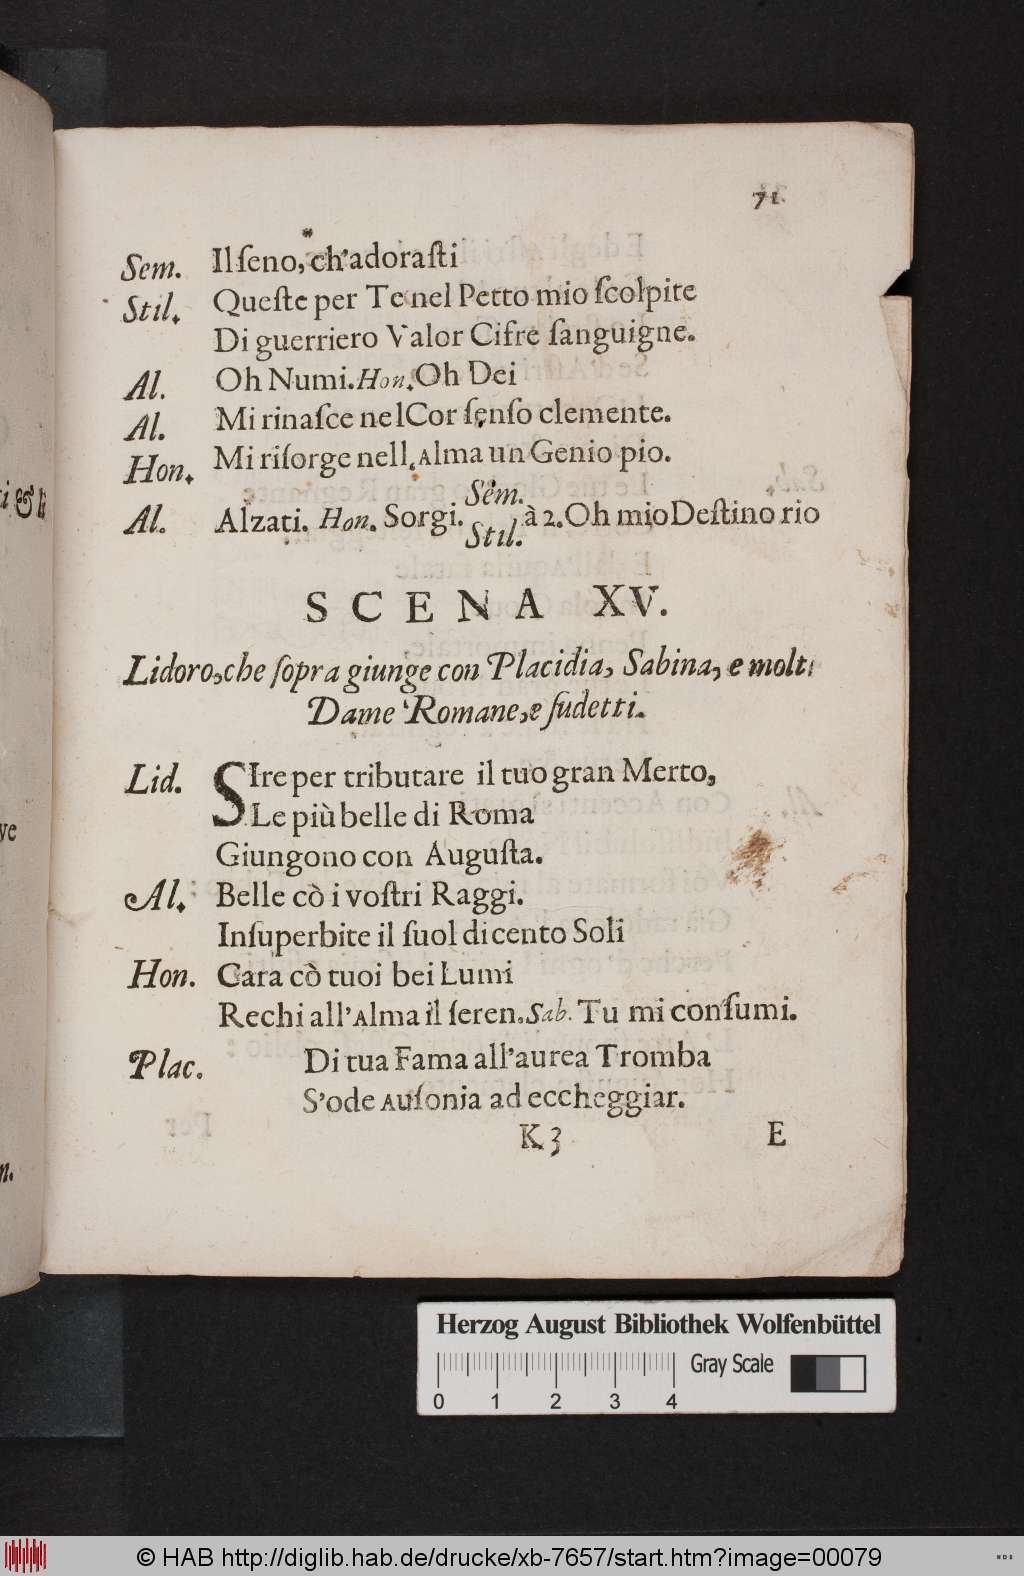 71.
Sem. Il ſeno, ch'adoraſti
Stil. Queſte per Te nel Petto mio ſcolpite
Di guerriero Valor Cifre ſanguigne.
Al. Oh Numi. Hon. Oh Dei
Al. Mi rinaſce nel Cor ſenſo clemente.
Hon. Mi riſorge nell' Alma un Genio pio.
Al. Alzati. Hon. Sorgi. Sem. Stil. à 2. Oh mio Deſtino rio
SCENA XV.
Lidoro, che ſopra giunge con Placidia, Sabina, e molti
Dame Romane, e ſudetti.
Lid. SIre per tributare il tuo gran Merto,
Le più belle di Roma
Giungono con Auguſta.
Al. Belle cò i voſtri Raggi.
Inſuperbite il ſuol di cento Soli
Hon. Cara cò tuoi bei Lumi
Rechi all'Alma il ſeren. Sab. Tu mi conſumi.
Plac. Di tua Fama all'aurea Tromba
S'ode Auſonia ad eccheggiar.
K 3 E
ve
n.
Herzog August Bibliothek Wolfenbüttel
Gray Scale
0 1 2 3 4
© HAB http://diglib.hab.de/drucke/xb-7657/start.htm?image=00079